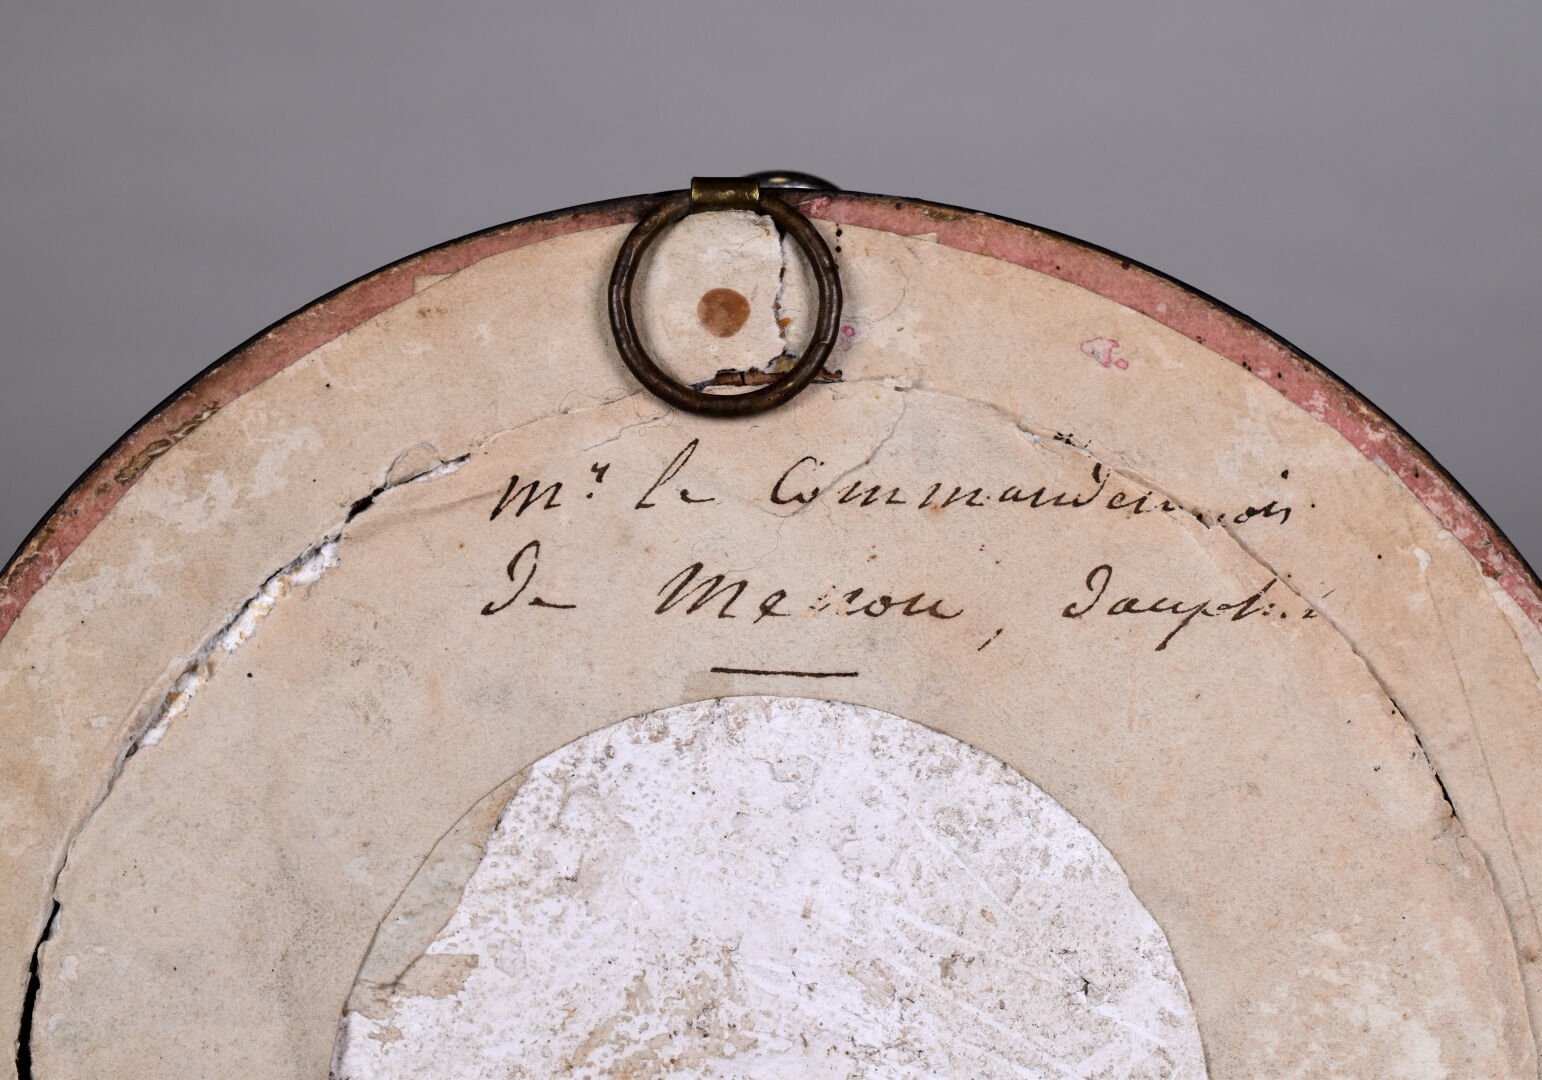 Mr. le Commandeur
De Menou, Dauphi